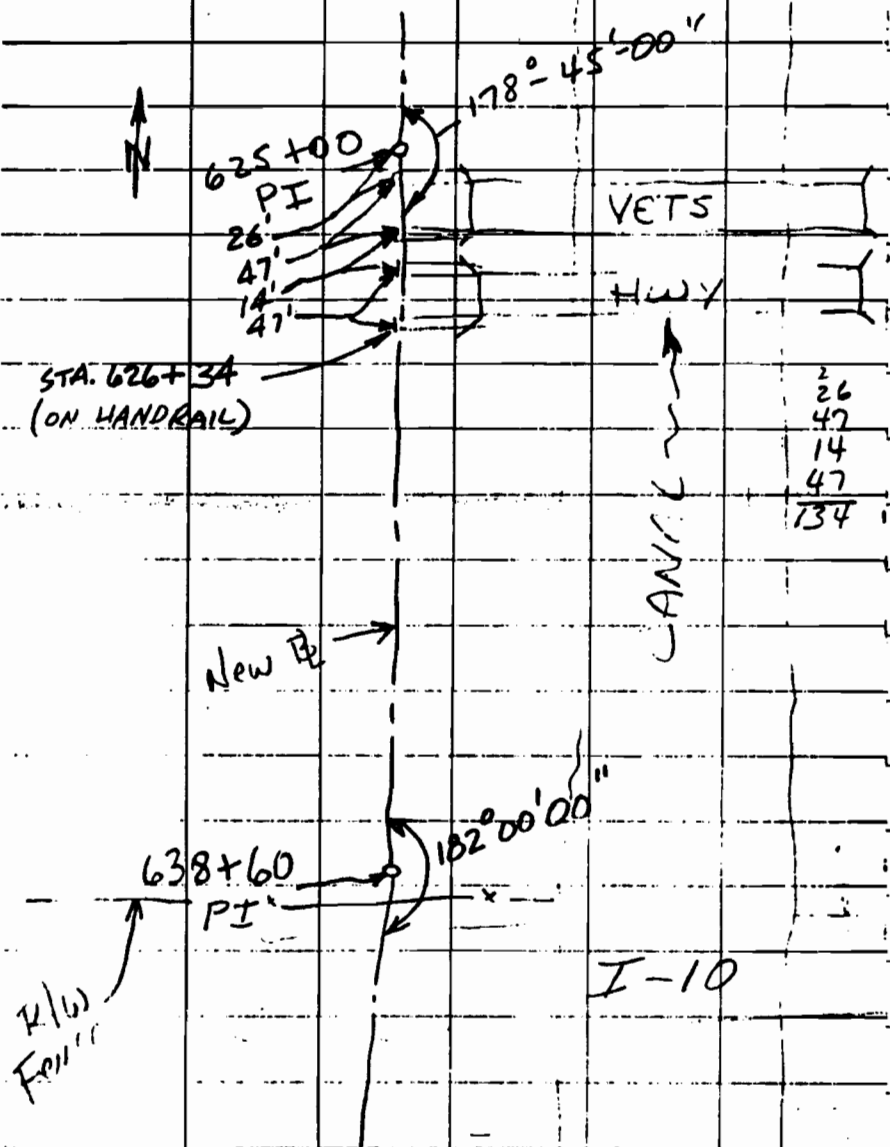 178°-45'-00"
N
625+00
PI
26'
47'
14'
47'
VETS
HWY
STA. 626+34
(ON HANDRAIL)
2
26
47
14
47
134
CANAL
New BL
182°00'00"
638+60
PI
R/W
I-10